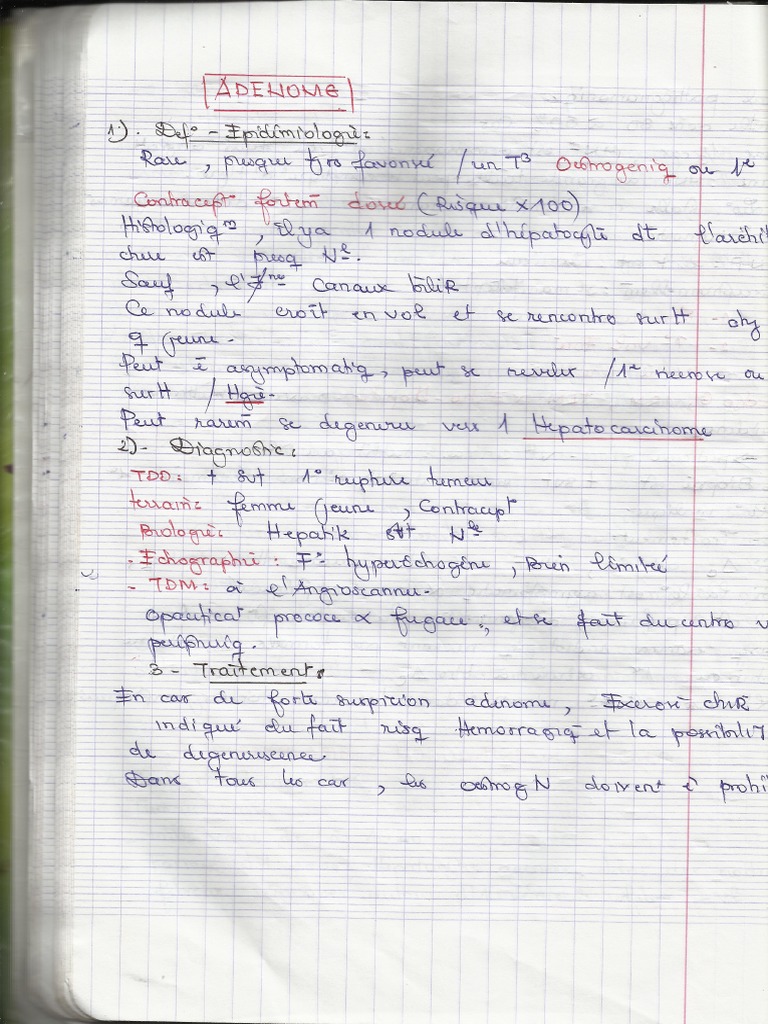 ADENOME
1). Def° - Epidémiologie:
Rare, presque tjrs favorisé / un T3 Oestrogeniq ou 1e
Contracept° fortem dosée (Risque x100)
Histologiqm, il y a 1 nodule d'hépatocyte dt l'archi
cture est presq Nle.
Sauf, l' canaux bilir
Ce nodule croît en vol et se rencontre surtt chz
q jeune.
Peut ê asymptomatiq, peut se reveler / 1e necrose ou
surtt / Hgie.
Peut rarem se degenerer vers 1 Hepatocarcinome
2)- Diagnostic:
TDD: + svt 1° rupture tumeur
terrain: femme jeune, Contracept°
Biologie: Hepatik svt Nle
- Echographie: I° hyperéchogène, Bien limitée
- TDM: à l'Angioscanner.
opacificat° précoce & fugace, et se fait du centre v
periphriq.
3 - Traitement:
En cas de forte suspicion adenome, Exerèse chir
indiqué du fait risq Hemorragiq et la possibilit
de degenerescence
Dans tous les cas, les oestrogN doivent ê prohi